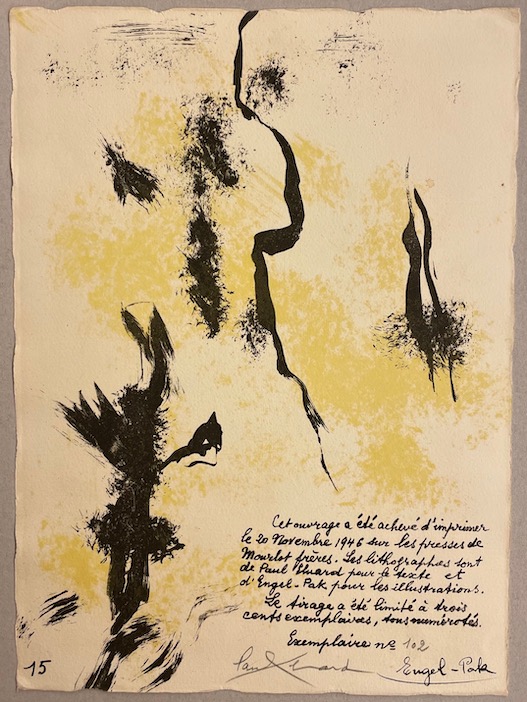 Cet ouvrage a été achevé d'imprimer
le 20 Novembre 1946 sur les presses de
Mourlot frères. Les lithographies sont
de Paul Eluard pour le texte et
d'Engel-Pak pour les illustrations.
Le tirage a été limité à trois
cents exemplaires, tous numérotés.
Exemplaire nº 102
15 Paul Eluard Engel-Pak